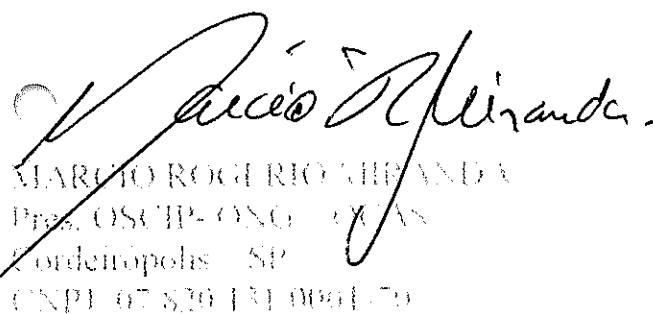 Marcio R Miranda.
MARCIO ROGERIO MIRANDA
Pres. OSCIP- ONG
Cordeirópolis SP
CNPJ 07 820 131 0001-70